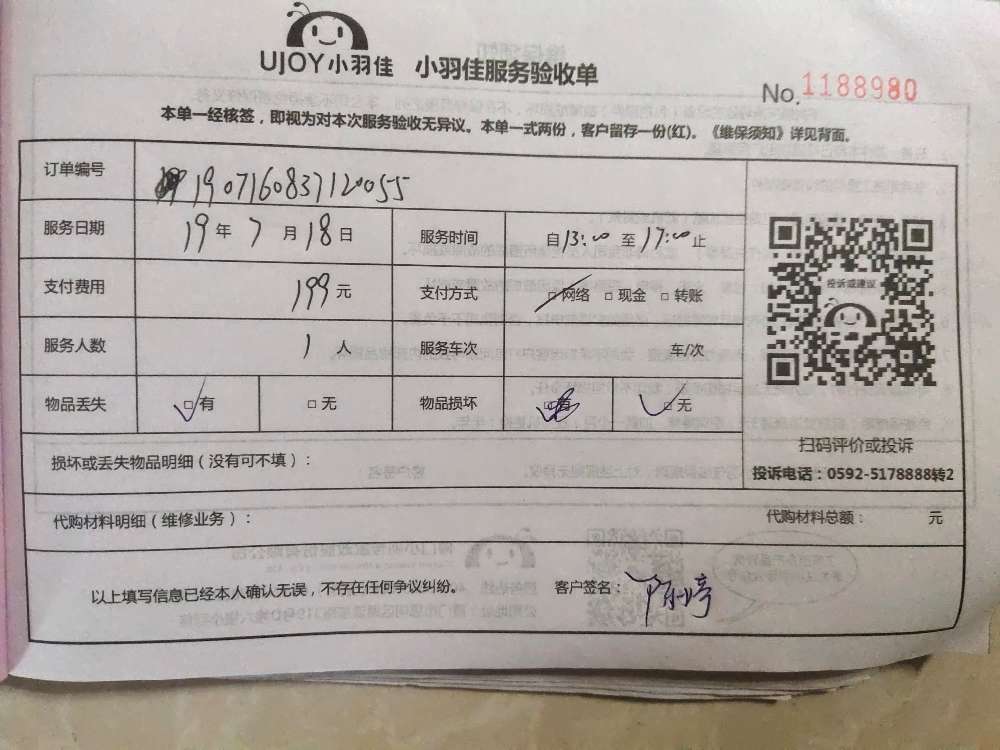 UJOY小羽佳 小羽佳服务验收单
No. 1188980
本单一经核签，即视为对本次服务验收无异议。本单一式两份，客户留存一份(红)。《维保须知》详见背面。
订单编号 1907160837120055
服务日期 19年7月18日 服务时间 自13:00至17:00止
支付费用 199元 支付方式 □网络 □现金 □转账
投诉或建议
服务人数 1人 服务车次 车/次
物品丢失 □有 □无 物品损坏 □有 □无
扫码评价或投诉
损坏或丢失物品明细（没有可不填）：
投诉电话：0592-5178888转2
代购材料明细（维修业务）： 代购材料总额： 元
以上填写信息已经本人确认无误，不存在任何争议纠纷。 客户签名：陈婷